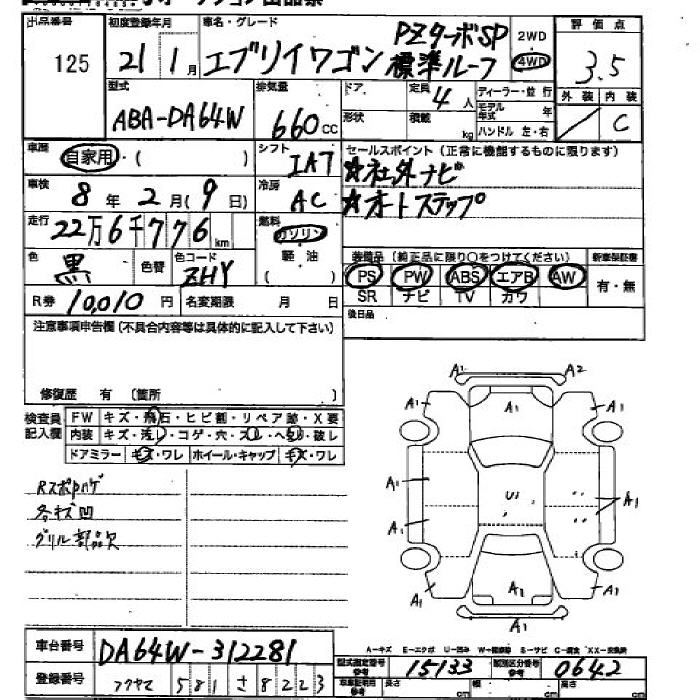 出品番号 初度登録年月 車名・グレード 評価点
125 21年1月 エブリイワゴン PZターボSP 標準ルーフ 2WD 4WD 3.5
型式 排気量 ドア 定員 ディーラー・並行 外装 内装
ABA-DA64W 660cc 4人 モデル年式 年 C
形状 積載 kg ハンドル 左・右
車歴 自家用・( ) シフト IAT セールスポイント(正常に機能するものに限ります)
☆社外ナビ
車検 8年2月(9日) 冷房 AC ☆オートステップ
走行 22万6千776km 燃料 ガソリン
色 黒 色替 色コード ZHY 軽油 ( ) 装備品(純正品に限り○をつけてください) 新車保証書
PS PW ABS エアB AW 有・無
SR ナビ TV カワ
R券 10,010円 名変期限 月 日 後日品
注意事項申告欄(不具合内容等は具体的に記入して下さい)
修復歴 有 〔箇所 〕
検査員記入欄 FW キズ・飛石・ヒビ割・リペア跡・X要
内装 キズ・汚れ・コゲ・穴・スレ・ヘタリ・破レ
ドアミラー キズ・ワレ ホイール・キャップ キズ・ワレ
Rスポハゲ
各キズ凹
グリル部品欠
A1 A2
A1 A1 A1
A1 U1 A1
A1
A1 A1 A1
A1
車台番号 DA64W-312281
A-キズ E-エクボ U-凹み S-サビ
型式指定番号 参考 15133 類別区分番号 参考 0642
登録番号 フクヤマ 581 さ 8223 長さ cm 幅 cm 高さ cm